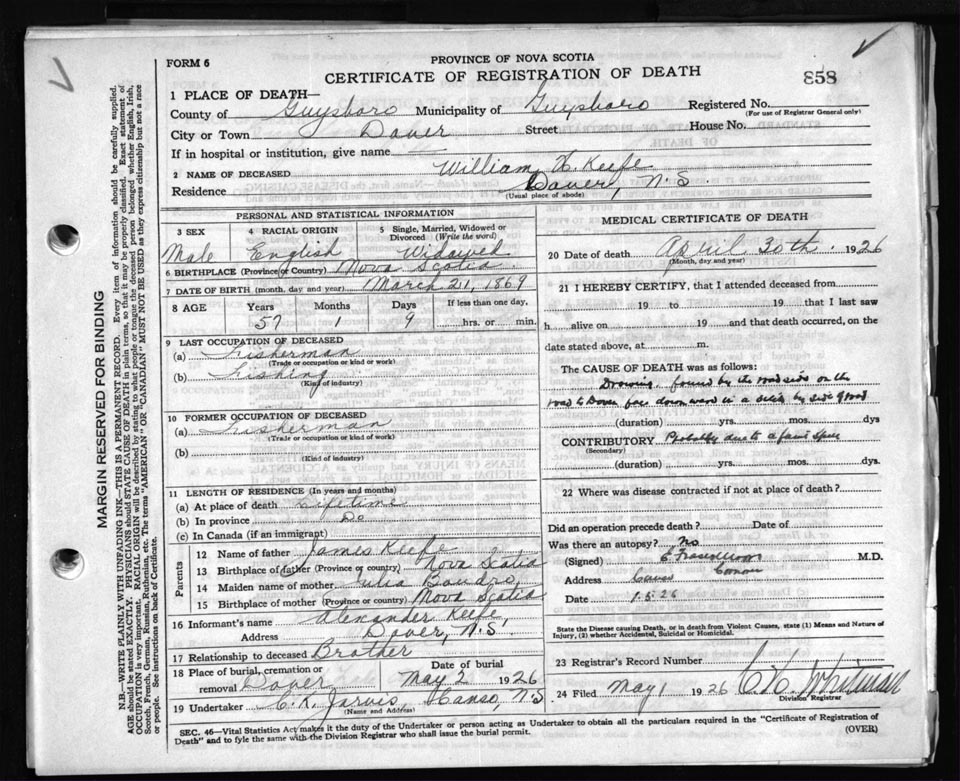 FORM 6
PROVINCE OF NOVA SCOTIA
CERTIFICATE OF REGISTRATION OF DEATH
858
1 PLACE OF DEATH—
County of Guysboro Municipality of Guysboro Registered No.
(For use of Registrar General only)
City or Town Dover Street House No.
If in hospital or institution, give name
2 NAME OF DECEASED William H. Keefe
Residence Dover, N.S.
(Usual place of abode)
PERSONAL AND STATISTICAL INFORMATION
3 SEX 4 RACIAL ORIGIN 5 Single, Married, Widowed or Divorced (Write the word)
Male English Widowed
6 BIRTHPLACE (Province or Country) Nova Scotia
7 DATE OF BIRTH (month, day and year) March 21, 1869
8 AGE Years Months Days If less than one day,
57 1 9 hrs. or min.
9 LAST OCCUPATION OF DECEASED
(a) Fisherman
(Trade or occupation or kind of work)
(b) Fishing
(Kind of industry)
10 FORMER OCCUPATION OF DECEASED
(a) Fisherman
(Trade or occupation or kind of work)
(b)
(Kind of industry)
11 LENGTH OF RESIDENCE (In years and months)
(a) At place of death Lifetime
(b) In province Do
(c) In Canada (if an immigrant)
Parents
12 Name of father James Keefe
13 Birthplace of father (Province or country) Nova Scotia
14 Maiden name of mother Julia
15 Birthplace of mother (Province or country) Nova Scotia
16 Informant's name Alexander Keefe,
Address Dover, N.S.
17 Relationship to deceased Brother
18 Place of burial, cremation or removal Dover Date of burial May 2 1926
19 Undertaker C. R. Jarvis, Canso, N S
(Name and Address)
MEDICAL CERTIFICATE OF DEATH
20 Date of death April 30th. 1926
(Month, day and year)
21 I HEREBY CERTIFY, that I attended deceased from
19 to 19 that I last saw
h alive on 19 and that death occurred, on the
date stated above, at m.
The CAUSE OF DEATH was as follows:
found by the road side on the
road to Dover face downward in a by side of road
(duration) yrs. mos. dys
CONTRIBUTORY Probably due to a faint
(Secondary)
(duration) yrs. mos. dys.
22 Where was disease contracted if not at place of death?
Did an operation precede death? Date of
Was there an autopsy? No
(Signed) M.D.
Address Canso
Date 1.5.26
State the Disease causing Death, or in death from Violent Causes, state (1) Means and Nature of
Injury, (2) whether Accidental, Suicidal or Homicidal.
23 Registrar's Record Number
24 Filed May 1 1926 C. H. Whitman
Division Registrar
SEC. 46—Vital Statistics Act makes it the duty of the Undertaker or person acting as Undertaker to obtain all the particulars required in the "Certificate of Registration of
Death" and to fyle the same with the Division Registrar who shall issue the burial permit. (OVER)
MARGIN RESERVED FOR BINDING
N.B.—WRITE PLAINLY WITH UNFADING INK—THIS IS A PERMANENT RECORD. Every item of information should be carefully supplied.
AGE should be stated EXACTLY. PHYSICIANS should STATE CAUSE OF DEATH in plain terms, so that it may be properly classified. Exact statement of
OCCUPATION is very important. RACIAL ORIGIN will be described by stating to what people or tongue the deceased person belonged whether English, Irish,
Scotch, French, German, Russian, Ruthenian, etc. The terms "AMERICAN" OR "CANADIAN" MUST NOT BE USED as they express citizenship but not a race
or people. See instructions on back of Certificate.